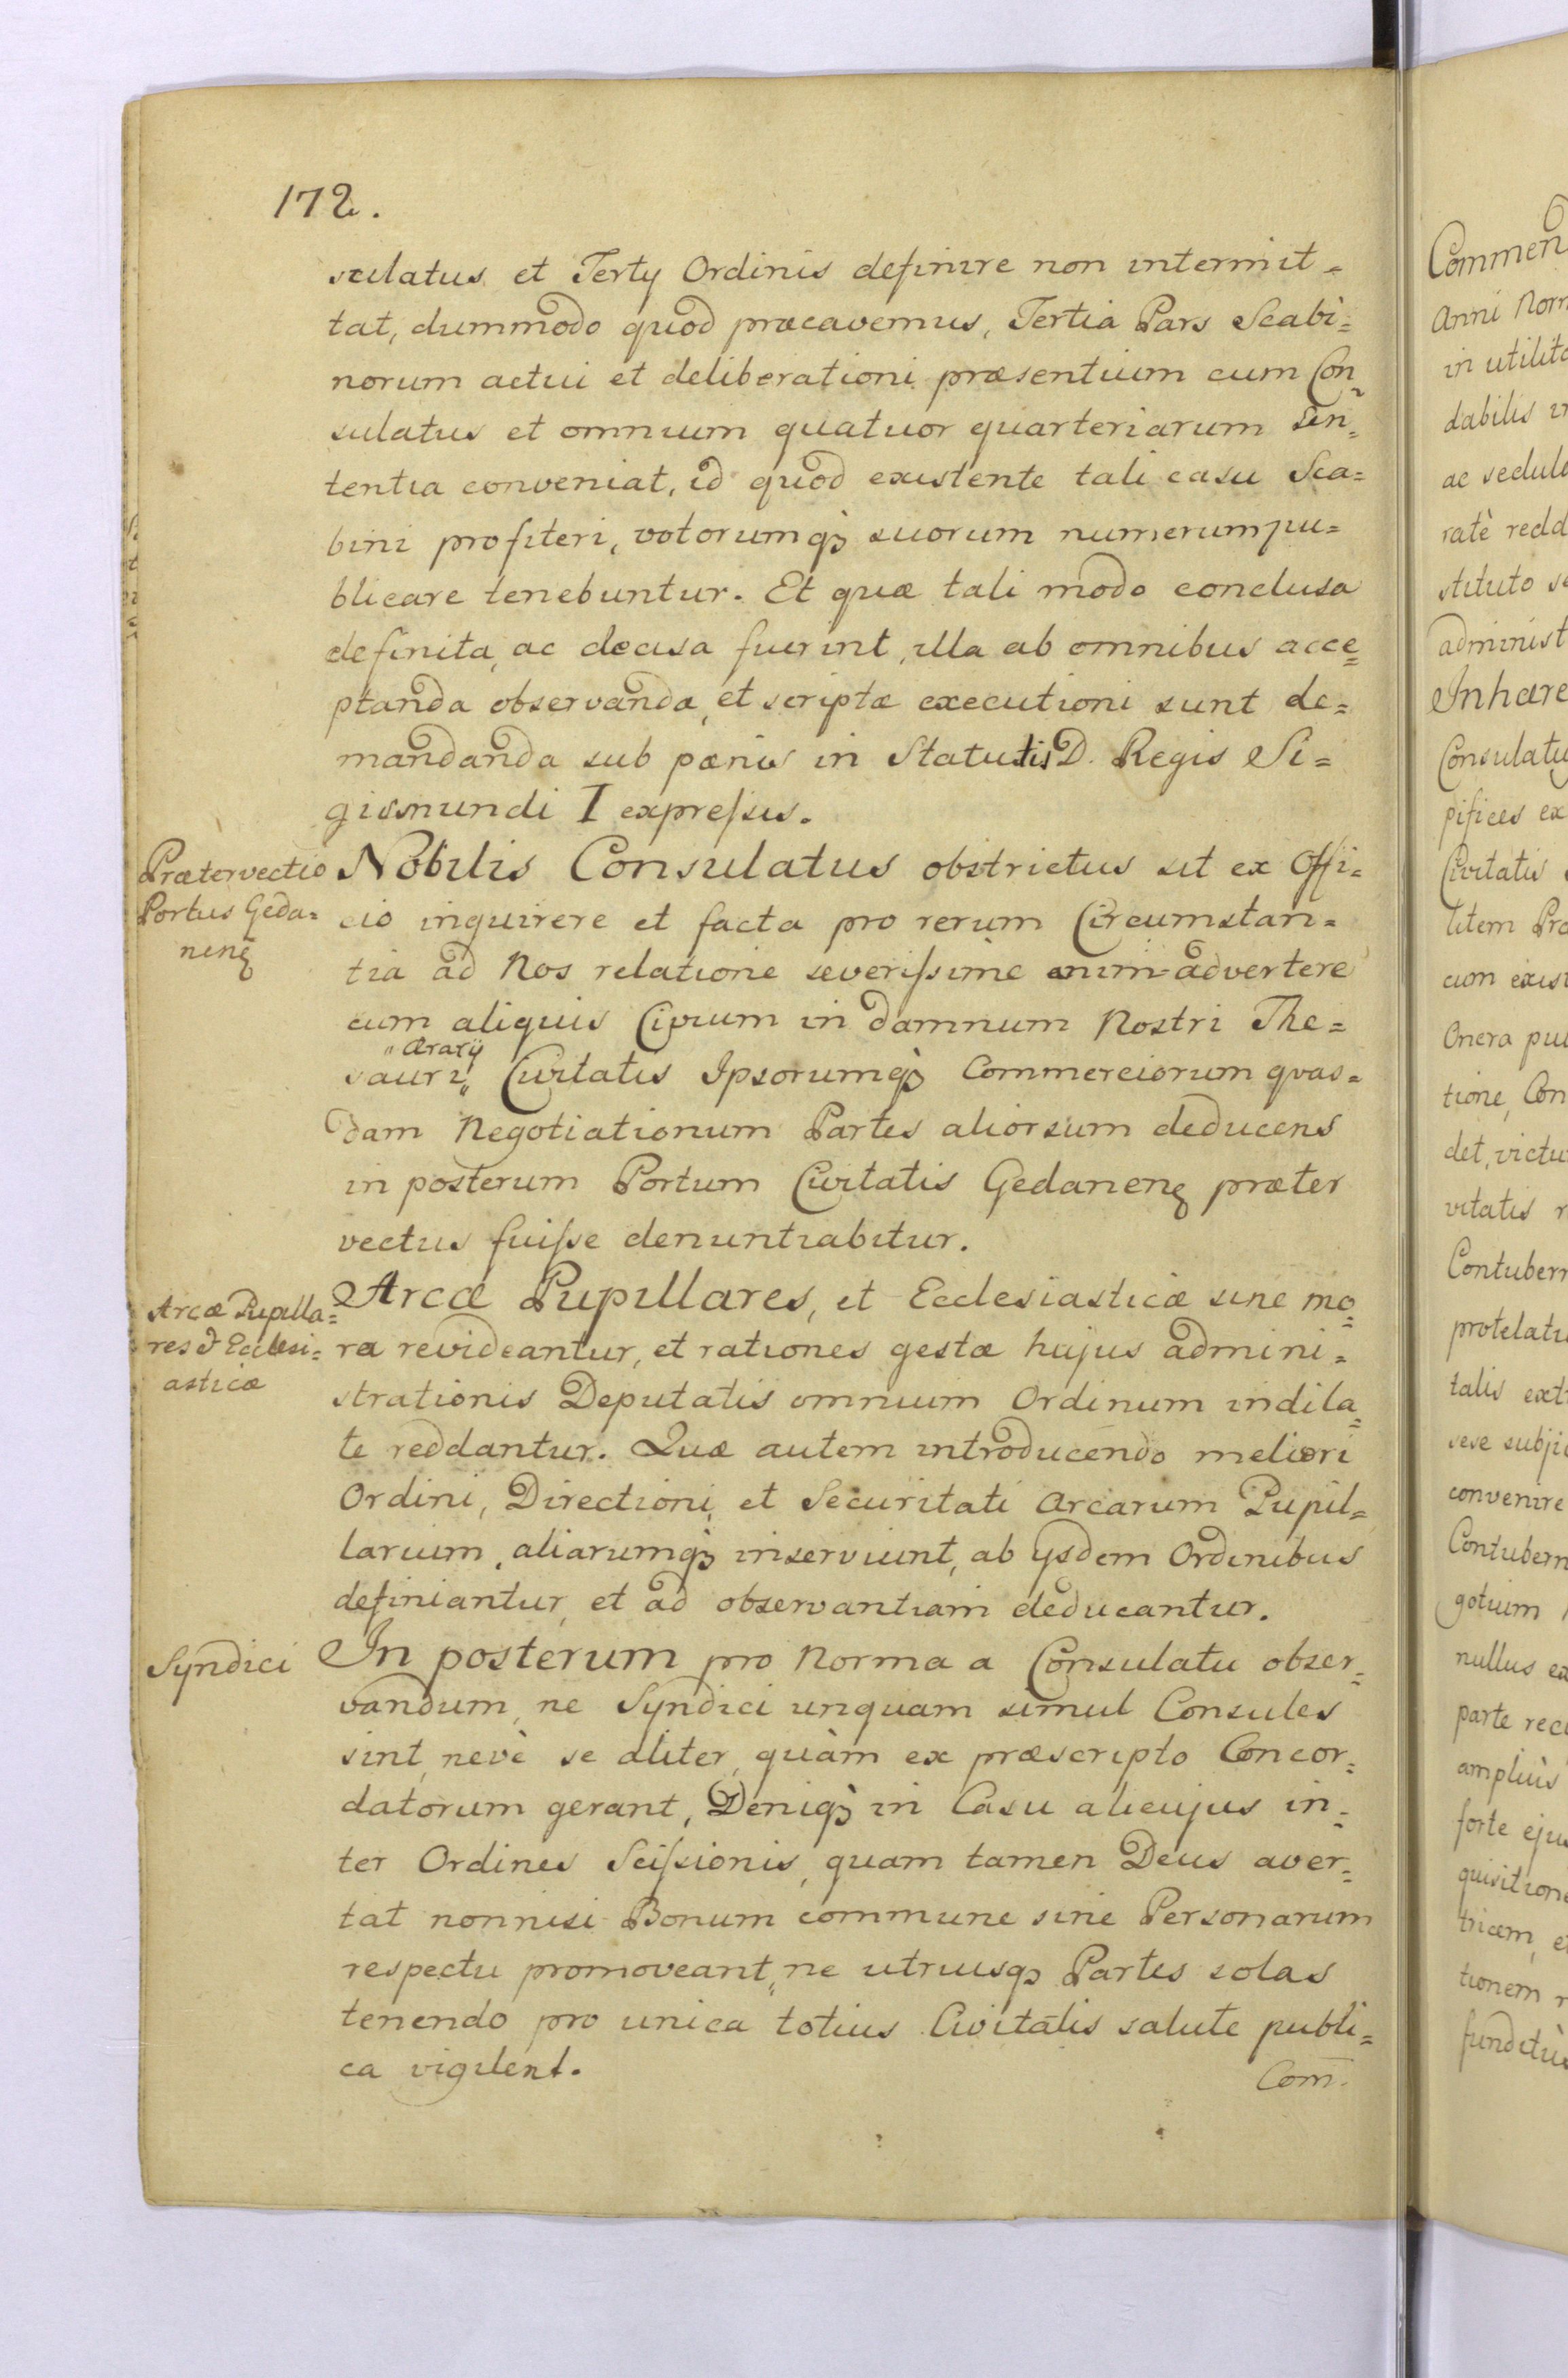 172.
sulatus et Tertÿ Ordinis definire non intermit=
tat, dummodo quod præcavemus, Tertia Pars Scabi=
norum actui et deliberationi præsentium cum Con=
sulatus et omnium quatuor quarteriarum sen=
tentia conveniat, id quod existente tali casu Sca=
bini profiteri, votorumqȝ suorum numerum pu=
blicare tenebuntur. Et quæ tali modo conclusa
definita, ac decisa fuerint, illa ab omnibus acce=
ptanda observanda, et scriptæ executioni sunt de=
mandanda sub pœnis in Statutis D. Regis Si=
gismundi I expreſsis.
Prætervectio
Portus Geda=
nenȩ
Nobilis Consulatus obstrictus sit ex Offi=
cio inquirere et facta pro rerum Circumstan=
tia ad Nos relatione severiſsime animadvertere
cum aliquis Civium in damnum Nostri The=
" Ærarÿ
sauri „ Civitatis Ipsorumqȝ Commerciorum quas=
dam Negotiationum Partes aliorsum deducens
in posterum Portum Civitatis Gedanenȩ præter
vectus fuiſse denuntiabitur.
Arcæ Pupilla=
res & Ecclesi=
asticæ
Arcæ Pupillares, et Ecclesiasticæ sine mo=
ra revideantur, et rationes gestæ hujus admini=
strationis Deputatis omnium Ordinum indila=
te reddantur. Quæ autem introducendo meliori
Ordini, Directioni, et Securitati Arcarum Pupil=
larium, aliarumqȝ inserviunt, ab ÿsdem Ordinibus
definiantur, et ad observantiam deducantur.
Syndici
In posterum pro Norma a Consulatu obser=
vandum, ne Syndici unquam simul Consules
sint, nevè se aliter, quàm ex præscripto Concor=
datorum gerant, Deniqȝ in Casu alicujus in=
ter Ordines Sciſsionis, quam tamen Deus aver=
tat nonnisi Bonum commune sine Personarum
respectu promoveant, ne utriusqȝ Partes solas
tenendo pro unica totius Civitatis salute publi=
ca vigilent.
Com̅.
Commen
Anni Norm
in utilita
dabilis in
ac sedule
ratè redd
stituto se
administ
Inhære
Consulatu
pifices ex
Civitatis
litem Pro
cum exist
Onera pu
tione, Con
det, victu
vitatis r
Contubern
protelatu
talis ext
sese subji
convenire
Contubern
gotium
nullus ex
parte rec
ampliùs
forte eju
quisition
tricem, et
tionem r
funditùs